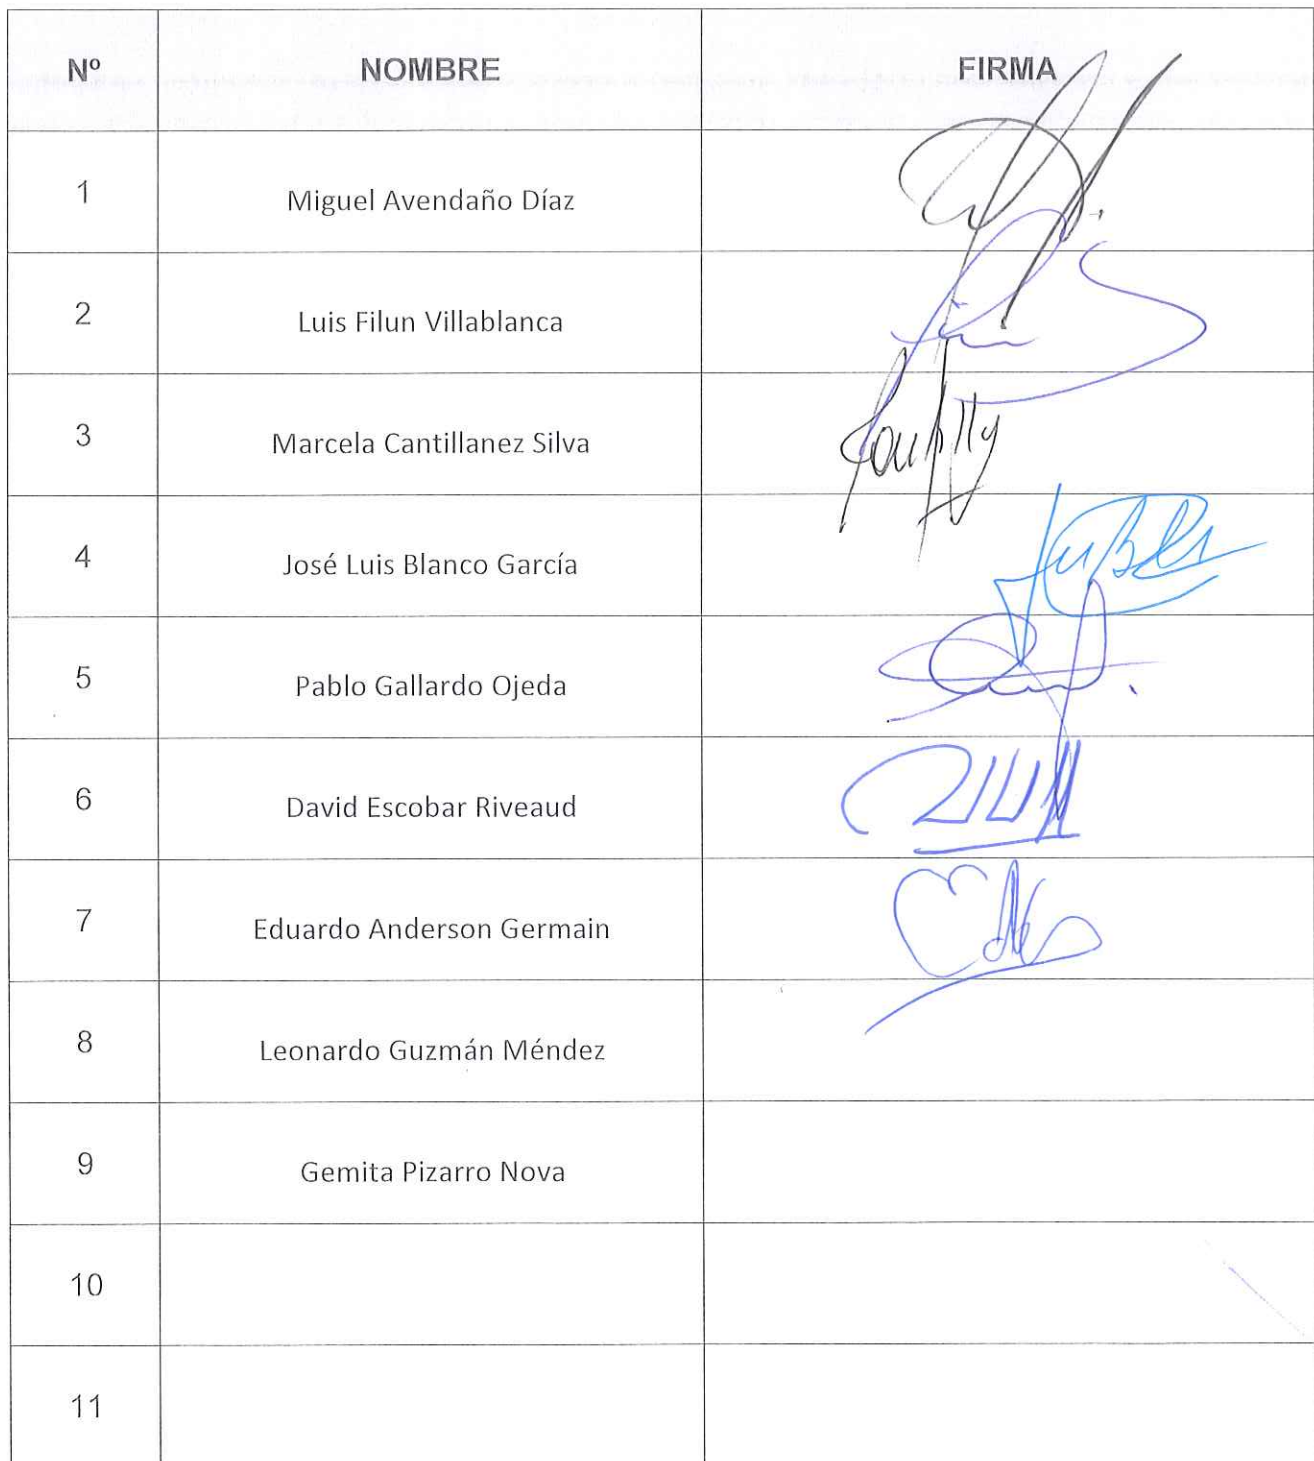 Nº NOMBRE FIRMA
1 Miguel Avendaño Díaz
2 Luis Filun Villablanca
3 Marcela Cantillanez Silva
4 José Luis Blanco García
5 Pablo Gallardo Ojeda
6 David Escobar Riveaud
7 Eduardo Anderson Germain
8 Leonardo Guzmán Méndez
9 Gemita Pizarro Nova
10
11